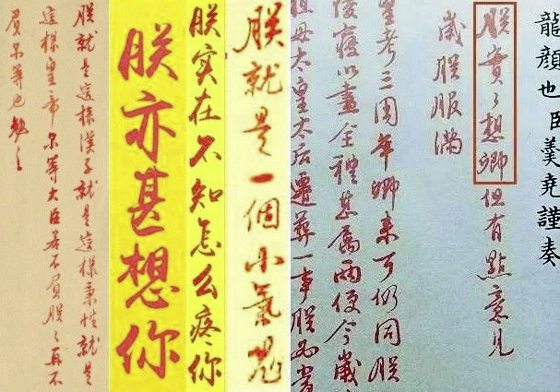 龍顏也臣羹堯謹奏
朕實々想卿但有點意見
歲朕服滿
皇考三周年卿来可仍同朕
陵寢以盡全禮甚屬兩便今歲
祖母太皇太后遷葬一事朕
朕就是一個小氣鬼
朕实在不知怎么疼你
朕亦甚想你
朕就是這樣漢子就是這樣秉性就是
這樣皇帝尔等大臣若不負朕々再不
負尔等也勉之